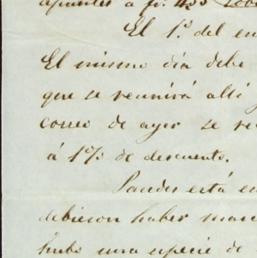 apuntes á fr. 455
El 1º. del en
El mismo dia debe
que se reunirá alli
correo de ayer se re
á 1% de descuento.
Paredes está en
debieron haber mar
hubo una especie de